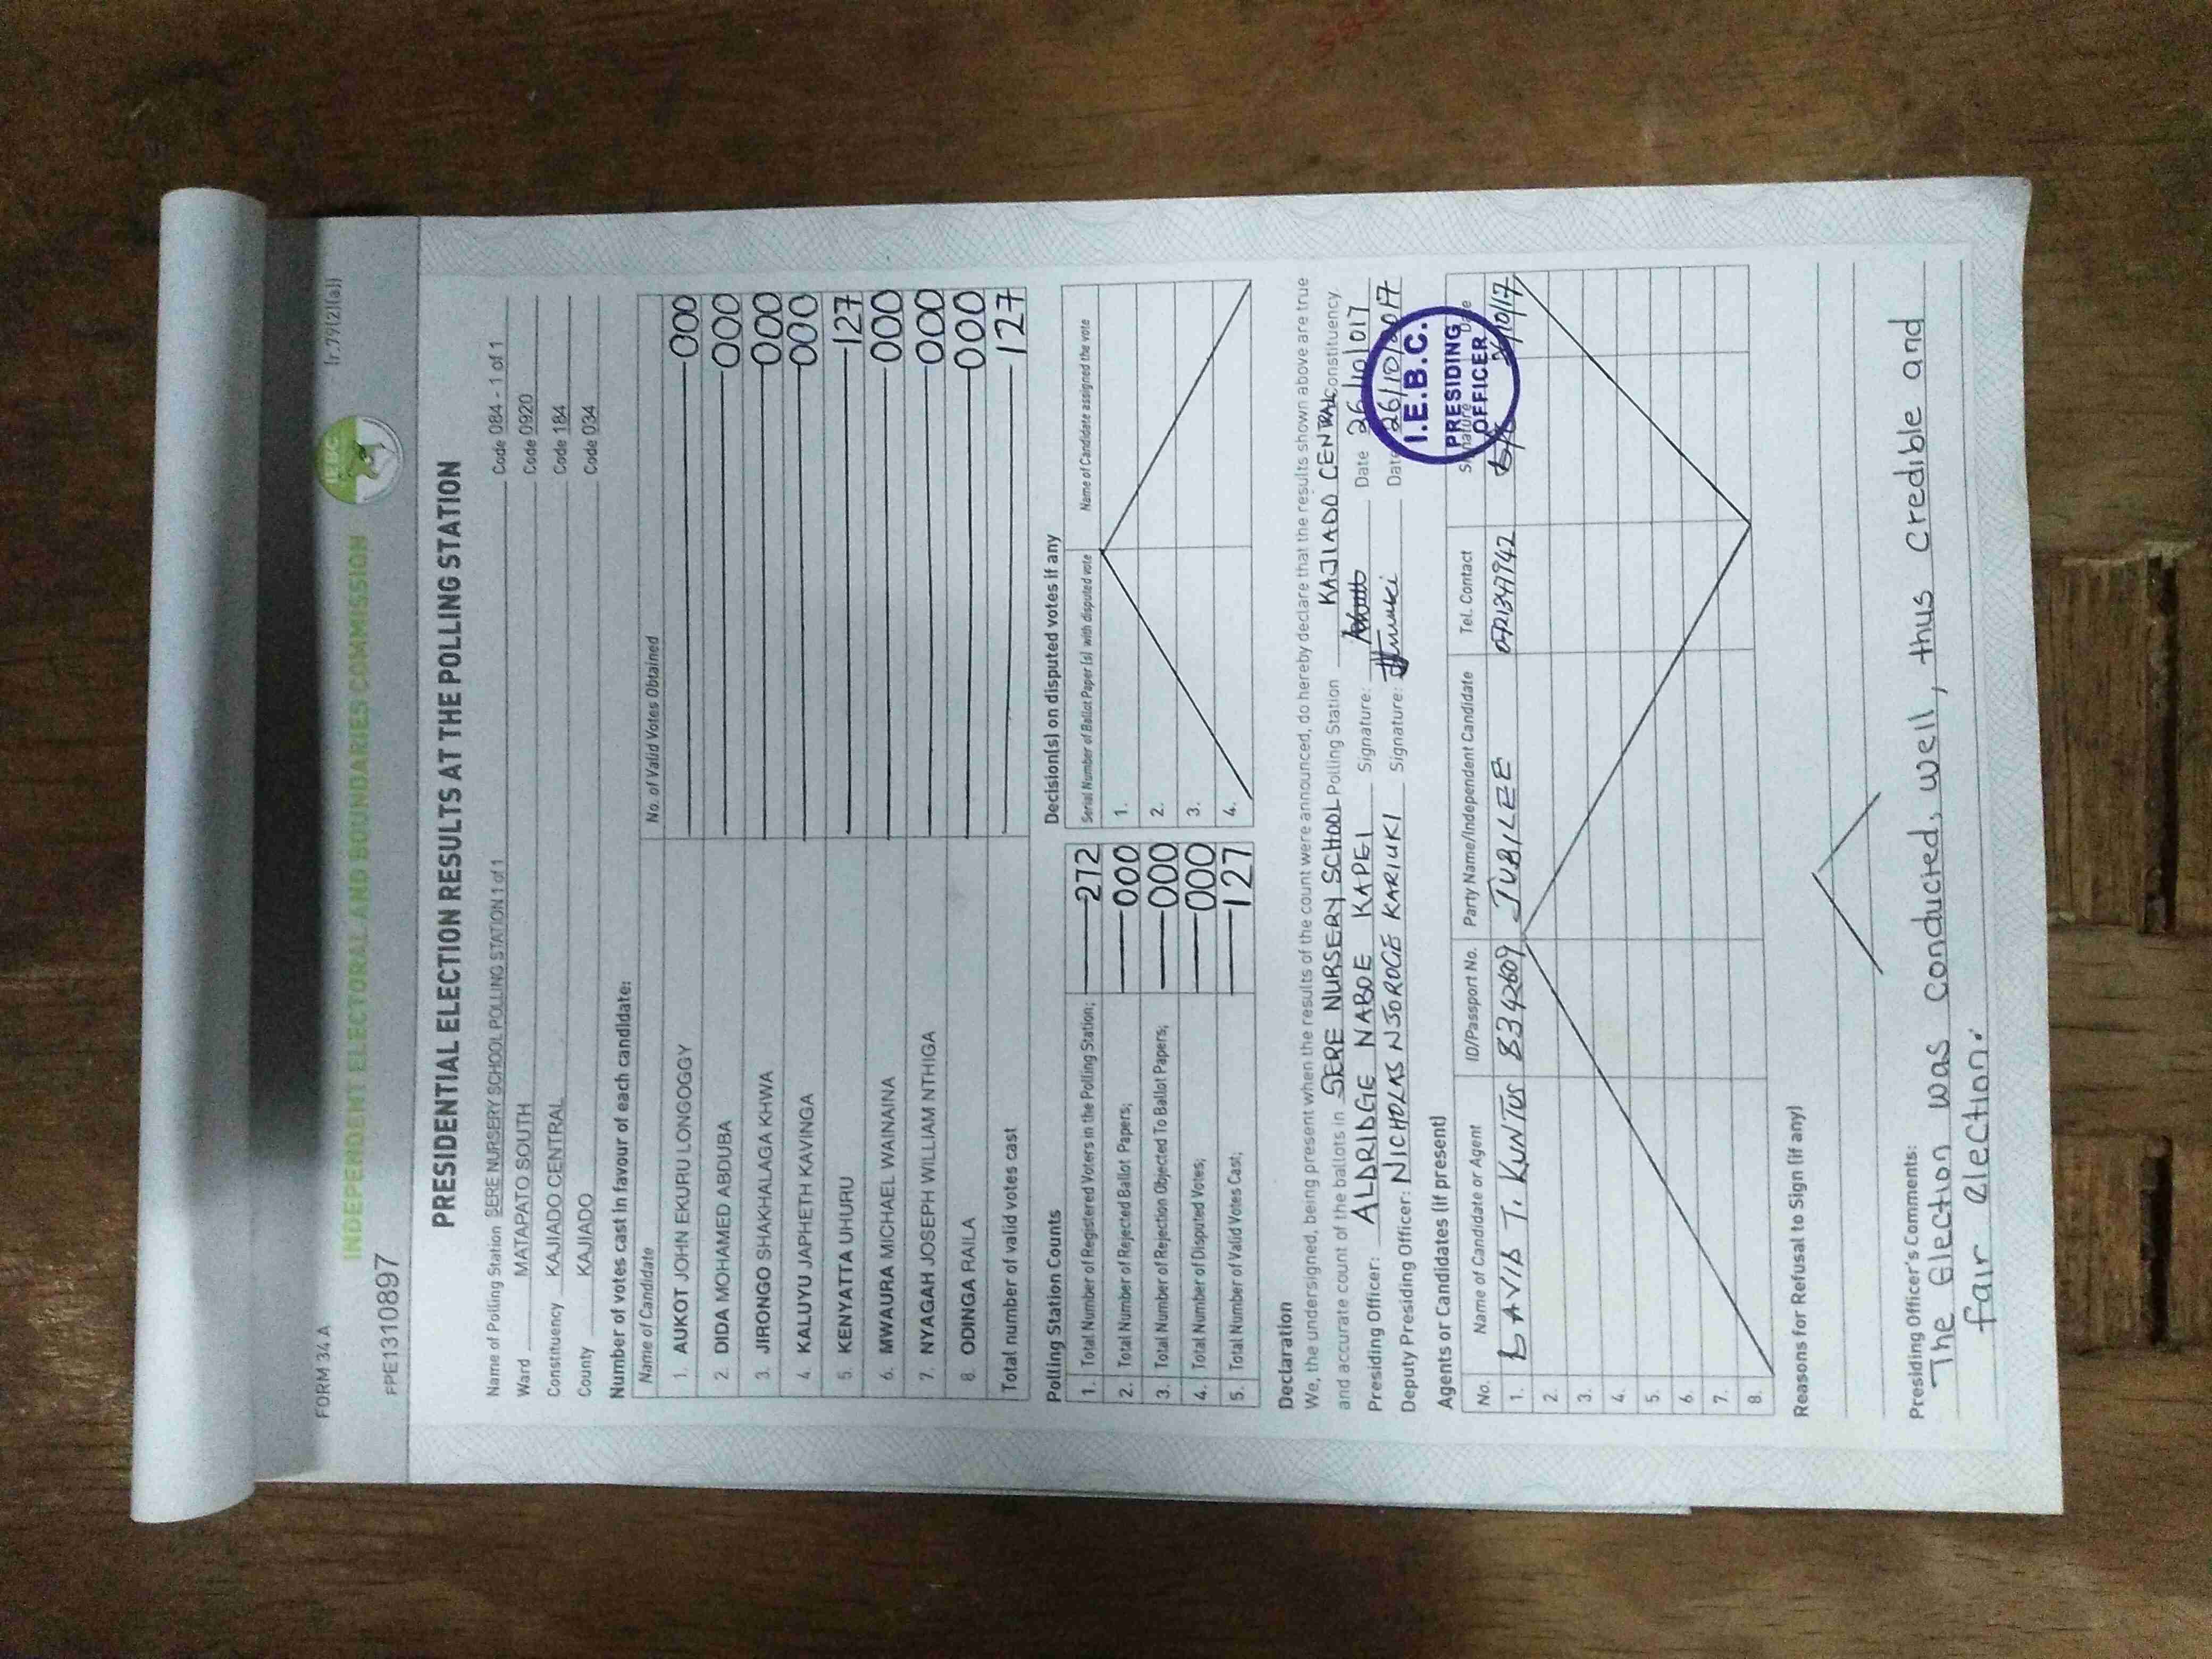 FORM 34 A
(r.79(2)(a))
INDEPENDENT ELECTORAL AND BOUNDARIES COMMISSION
IEBC
FPE1310897
PRESIDENTIAL ELECTION RESULTS AT THE POLLING STATION
Name of Polling Station SERE NURSERY SCHOOL POLLING STATION 1 of 1 Code 084 - 1 of 1
Ward MATAPATO SOUTH Code 0920
Constituency KAJIADO CENTRAL Code 184
County KAJIADO Code 034
Number of votes cast in favour of each candidate:
Name of Candidate No. of Valid Votes Obtained
1. AUKOT JOHN EKURU LONGOGGY 000
2. DIDA MOHAMED ABDUBA 000
3. JIRONGO SHAKHALAGA KHWA 000
4. KALUYU JAPHETH KAVINGA 000
5. KENYATTA UHURU 127
6. MWAURA MICHAEL WAINAINA 000
7. NYAGAH JOSEPH WILLIAM NTHIGA 000
8. ODINGA RAILA 000
Total number of valid votes cast 127
Polling Station Counts
1. Total Number of Registered Voters in the Polling Station; 272
2. Total Number of Rejected Ballot Papers; 000
3. Total Number of Rejection Objected To Ballot Papers; 000
4. Total Number of Disputed Votes; 000
5. Total Number of Valid Votes Cast; 127
Decision(s) on disputed votes if any
Serial Number of Ballot Paper (s) with disputed vote Name of Candidate assigned the vote
1.
2.
3.
4.
Declaration
We, the undersigned, being present when the results of the count were announced, do hereby declare that the results shown above are true
and accurate count of the ballots in SERE NURSERY SCHOOL Polling Station KAJIADO CENTRAL Constituency.
Presiding Officer: ALDRIDGE NABOE KAPEI Signature: Date 26/10/017
Deputy Presiding Officer: NICHOLAS NJOROGE KARIUKI Signature: Date 26/10/2017
I.E.B.C.
PRESIDING
OFFICER
Agents or Candidates (if present)
No. Name of Candidate or Agent ID/Passport No. Party Name/Independent Candidate Tel. Contact Signature Date
1. DAVID T. KUNTUS 8342609 JUBILEE
2.
3.
4.
5.
6.
7.
8.
Reasons for Refusal to Sign (if any)
Presiding Officer's Comments:
The Election was conducted, well, thus credible and
fair election.